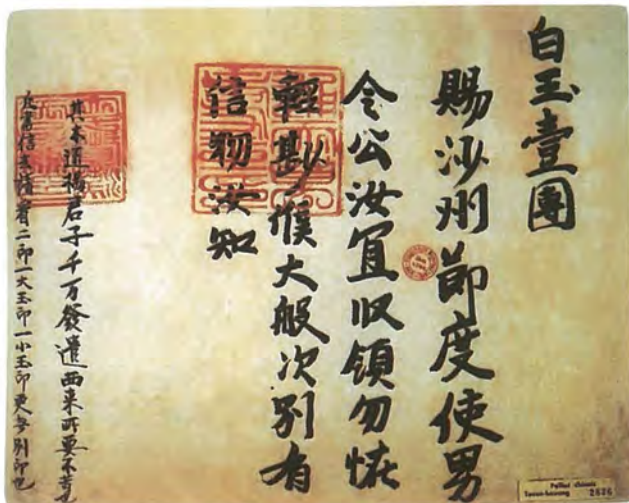 白玉壹團
賜沙州莭度使男
令公汝冝収領勿恠
輕尠候大般次別有
信物汝知
其木匠楊君子千万發遣西来所要不昔也
凡書信去請看二印一大玉印一小玉印更無別印也
Pelliot chinois
Touen-houang 2826